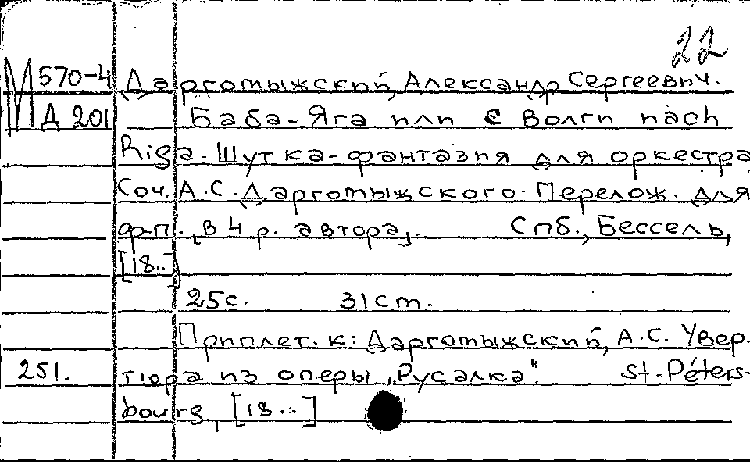 22
М 570-4 Даргомыжский, Александр Сергеевич.
Д 201 Баба-Яга или С Волги nach
Riga. Шутка-фантазия для оркестра
Соч. А.С. Даргомыжского. Перелож. для
ф.-п. [в 4 р. автора]. Спб., Бессель,
[18..]
25с. 31cm.
Приплет. к: Даргомыжский, А.С. Увер-
251. тюра из оперы "Русалка". St.-Péters-
bourg, [18..]